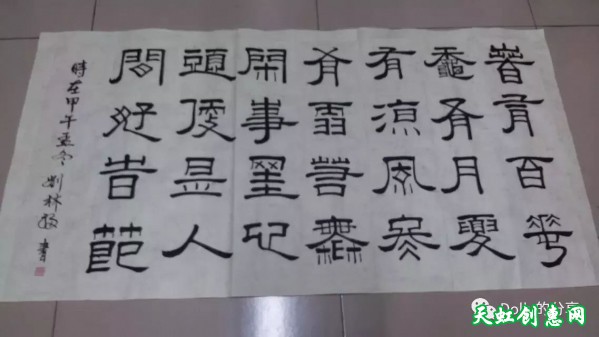 春有百花
秋有月夏
有涼風冬
有雪若無
閑事罣心
頭便是人
間好旹節
時在甲午孟冬 劉林 書
的分享
天虹创惠网